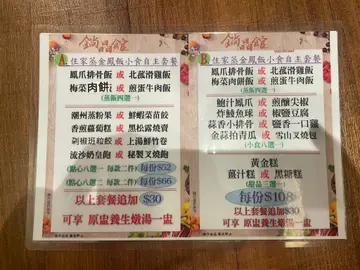 A 住家蒸金鳳飯小食自主套餐
鳳爪排骨飯 或 北菰滑雞飯
梅菜肉餅 或 煎蛋牛肉飯
(蒸飯四選一)
潮州蒸粉果 或 鮮蝦菜苗餃
香煎蘿蔔糕 或 黑松露燒賣
或 上湯鮮竹卷
流沙奶皇飽 或 秘製叉燒飽
(點心八選一 每款二件) 每份$52
(點心八選二 每款二件) 每份$66
以上套餐追加 $30
可享 原盅養生燉湯一盅
B 住家蒸金鳳飯小食自主套餐
鳳爪排骨飯 或 北菰滑雞飯
梅菜肉餅飯 或 煎蛋牛肉飯
(蒸飯四選一)
鮑汁鳳爪 或 煎釀尖椒
炸鯪魚球 或 椒鹽豆腐
蒜香小排骨 或 鹽香一口雞
金蒜拍青瓜 或 雪山叉燒包
(小食八選一)
黃金糕
薑汁糕 或 黑糖糕
(甜品三選一)
每份$108
以上套餐追加$30
可享 原盅養生燉湯一盅